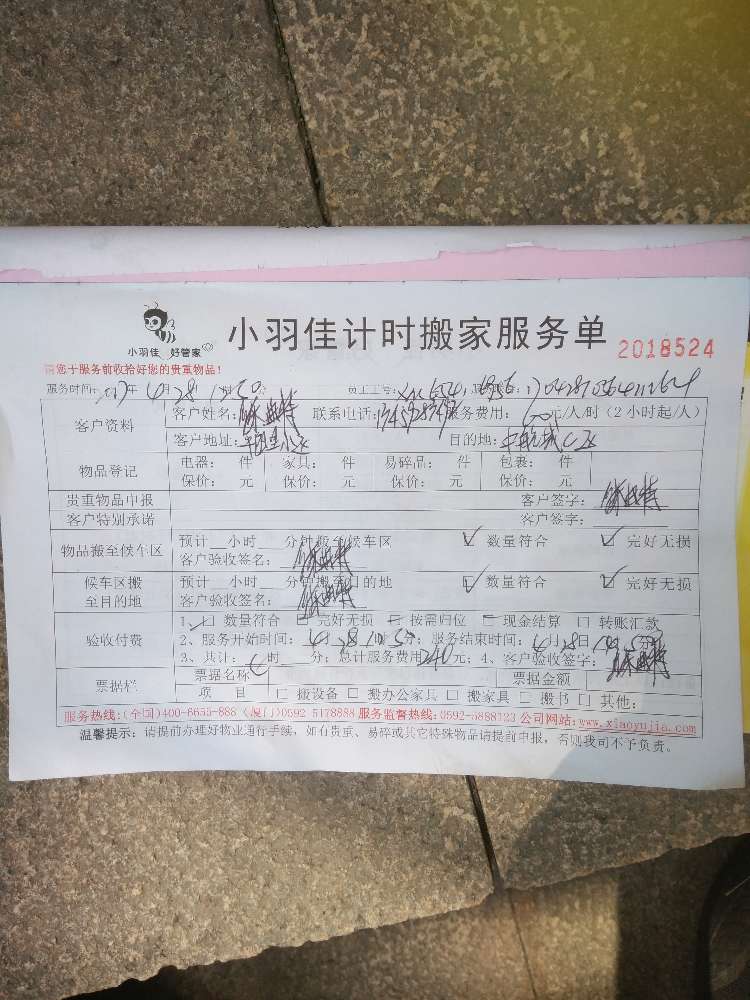 小羽佳 好管家
小羽佳计时搬家服务单 2018524
请您于服务前收拾好您的贵重物品！
服务时间：2017年4月28日 员工工号：
客户资料 客户姓名： 联系电话： 服务费用：60元/人/时（2小时起/人）
客户地址： 目的地：
物品登记 电器： 件 家具： 件 易碎品： 件 包裹： 件
保价： 元 保价： 元 保价： 元 保价： 元
贵重物品申报 客户签字：
客户特别承诺 客户签字：
物品搬至候车区 预计 小时 分钟搬至候车区 ☑ 数量符合 ☑ 完好无损
客户验收签名：
候车区搬至目的地 预计 小时 分钟搬至目的地 ☑ 数量符合 ☑ 完好无损
客户验收签名：
验收付费 1、☑ 数量符合 完好无损 按需归位 现金结算 □ 转账汇款
2、服务开始时间：4月28日 分；服务结束时间：4月28日 分
3、共计：4时 分；总计服务费用240元；4、客户验收签字：
票据栏 票据名称 票据金额
项 目 □ 搬设备 □ 搬办公家具 □ 搬家具 □ 搬书 □ 其他：
服务热线：(全国)400-6655-888 (厦门)0592-5178888 服务监督热线：0592-5888123 公司网站：www.xiaoyujia.com
温馨提示：请提前办理好物业通行手续，如有贵重、易碎或其它特殊物品请提前申报，否则我司不予负责。